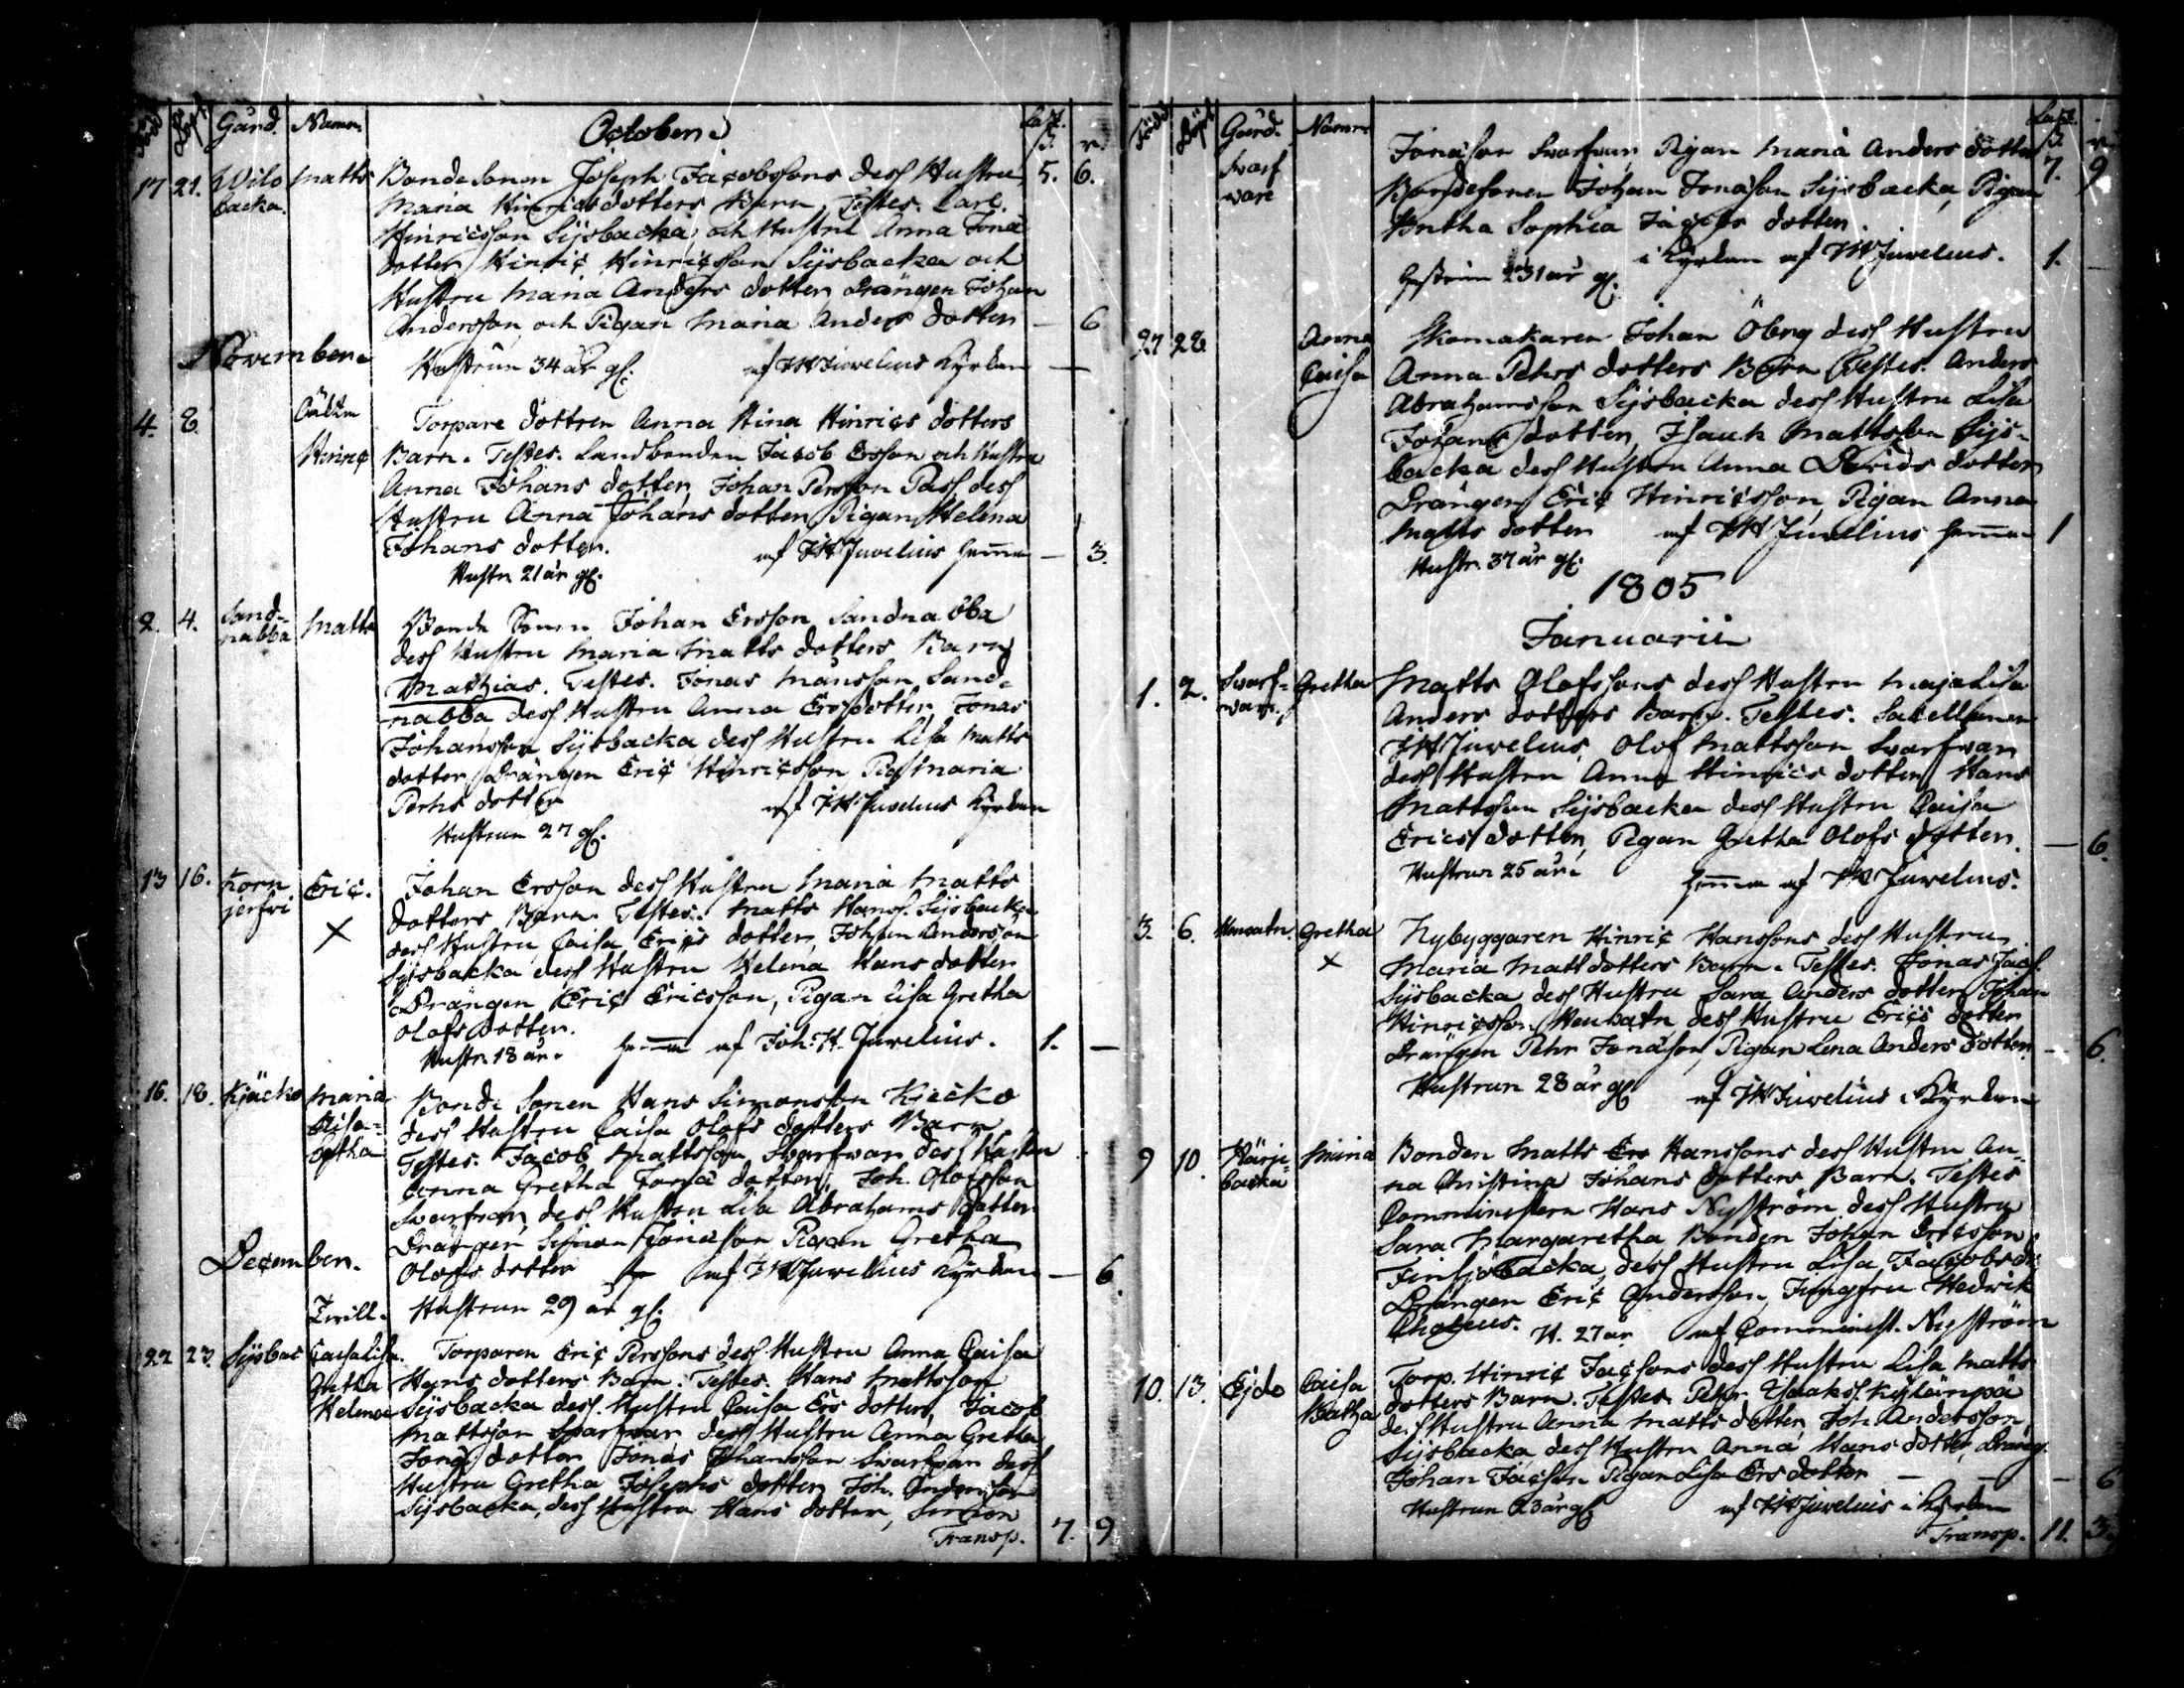 Född Döpt Gård. Namn October Cass. ß. r.
17 21. Wilo Matts Bonde Sonen Joseph Jacobssons dess Hustru 5. 6.
backa. Maria Hinricsdotters Barn, Testes. Carl
Hinricsson Sijsbacka, och Hustru Anna Jona
dotter, Hinric Hinricsson Sijsbacka och
Hustru Maria Anders dotter, Drängen Johan
Andersson, och Pigan Maria Anders dotter — 6
November
Hustrun 34 år gl. af JH Juvelius Kyrkan —
4. 8. Oäkta Torpare dottren Anna Stina Hinrics dotters
Hinric Barn. Testes. Landbonden Jacob Ersson och Hustru
Anna Johans dotter, Johan Persson Pass dess
Hustru Anna Johans dotter, Pigan Helena
Johans dotter. af JH Juvelius hemma — 3.
Hustr. 21 år gl.
2. 4. Sand= Matts Bonde Sonen Johan Ersson Sandnabba
nabba dess Hustru Maria Matts dotters Barn
Mathias. Testes. Jonas Månsson Sand=
nabba dess Hustru Anna Ersdotter, Jonas
Johansson Sijsbacka dess Hustru Lisa Matts
dotter, Drängen Eric Hinricsson Pig. Maria
Pehrs dotter af JH Juvelius Kyrkan
Hustrun 27 gl.
13 16. Korn Eric. Johan Ersson dess Hustru Maria Matts
jerfvi × dotters Barn. Testes. Matts Hanss. Sijsbacka
dess Hustru Caisa Erics dotter, Johan Andersson
Sijsbacka dess Hustru Helena Hans dotter
Drängen Eric Ericsson, Pigan Lisa Gretha
Olofs dotter.
Hustr. 18 år. hemma af Joh: H. Juvelius. 1. —
16. 18. Kjäcko Maria Bonde Sonen Hans Simonsson Kiecko
Lisa= dess Hustru Caisa Olofs dotters Barn
Testes. Jacob Mattsson Svarfvar dess Hustru
Anna Gretha Jona dotter, Joh. Olofsson
Svarfvar, dess Hustru Lisa Abrahams dotter
Drängen Simon Jonasson Pigan Gretha
December.
Olofs dotter af JH Juvelius Kyrkan — 6.
Twill. Hustrun 29 år gl.
22 23. Sijsbac Caisa Lisa. Torparen Eric Perssons dess Hustru Anna Caisa
Gretha Hans dotters Barn. Testes. Hans Mattsson
Helena Sijsbacka dess. Hustru Caisa Ers dotter, Jacob
Mattsson Svarfvar dess Hustru Anna Gretha
Jona dotter Jonas Johansson Svarfvar dess
Hustru Gretha Josephs dotter, Joh. Andersson
Sijsbacka, dess Hustru Hans dotter, Simon
Transp. 7. 9
Född Döpt Gård. Namn Cass. ß. r.
Svarf Jonasson Svarfvar, Pigan Maria Anders dotter 7. 9
vare Bondesonen Johan Jonasson Sijsbacka, Pigan
Sophia Jacobs dotter
Hustrun 31 år gl. i Kyrkan af JH Juvelius. 1. —
27 28 Anna Skomakaren Johan Öberg dess Hustru
Caisa Anna Pehrs dotters Barn Testes. Anders
Abrahamsson Sijsbacka dess Hustru Lisa
Johans dotter, Isack Mattsson Sijs=
backa dess Hustru Anna Davids dotter
Drängen Eric Hinricsson, Pigan Anna
Matts dotter af JH Juvelius hemma 1
Hustr. 37 år gl.
1805
Januarii
1. 2. Svarf= Gretha Matts Olofssons dess Hustru Maja Lisa
vare. Anders dotters Barn. Testes. Sacellanen
JH Juvelius, Olof Mattsson Svarfvar
dess Hustru Anna Hinrics dotter, Hans
Mattsson Sijsbacka dess Hustru Caisa
Erics dotter, Pigan Gretha Olofs dotter. — 6.
Hustrun 25 år. hemma af JH Juvelius.
3. 6. Gretha Nybyggaren Hinric Hanssons dess Hustru
× Maria Matts dotters Barn. Testes. Jonas Jacs.
Sijsbacka dess Hustru Sara Anders dotter, Johan
Hinricsson dess Hustru Erics dotter
Drängen Pehr Jonasson, Pigan Lena Anders dotter. — 6.
Hustrun 28 år gl af JH Juvelius i Kyrkan
9 10. Härje= Maria Bonden Matts Ers Hanssons dess Hustru An=
backa na Christina Johans dotters Barn. Testes
Comministern Hans Nyström dess Hustru
Sara Margaretha Bonden Johan Ericsson
Finsjöbacka, dess Hustru Lisa Jacobs dr.
Drängen Eric Andersson, Jungfru Hedwik
H. 27 år af Comminist. Nyström
10. 13. Ejdo Caisa Torp. Hinric Jacssons dess Hustru Lisa Matts
dotters Barn. Testes. Pehr Isakss. Kylänpä
dess Hustru Anna Matts dotter, Joh. Andersson
Sijsbacka, dess Hustru Anna Hans dotter, Dräng.
Johan Jacsson Pigan Lisa Ers dotter — — — 6
Hustrun 23 år gl. af JH Juvelius i Kyrkan
Transp. 11. 3.